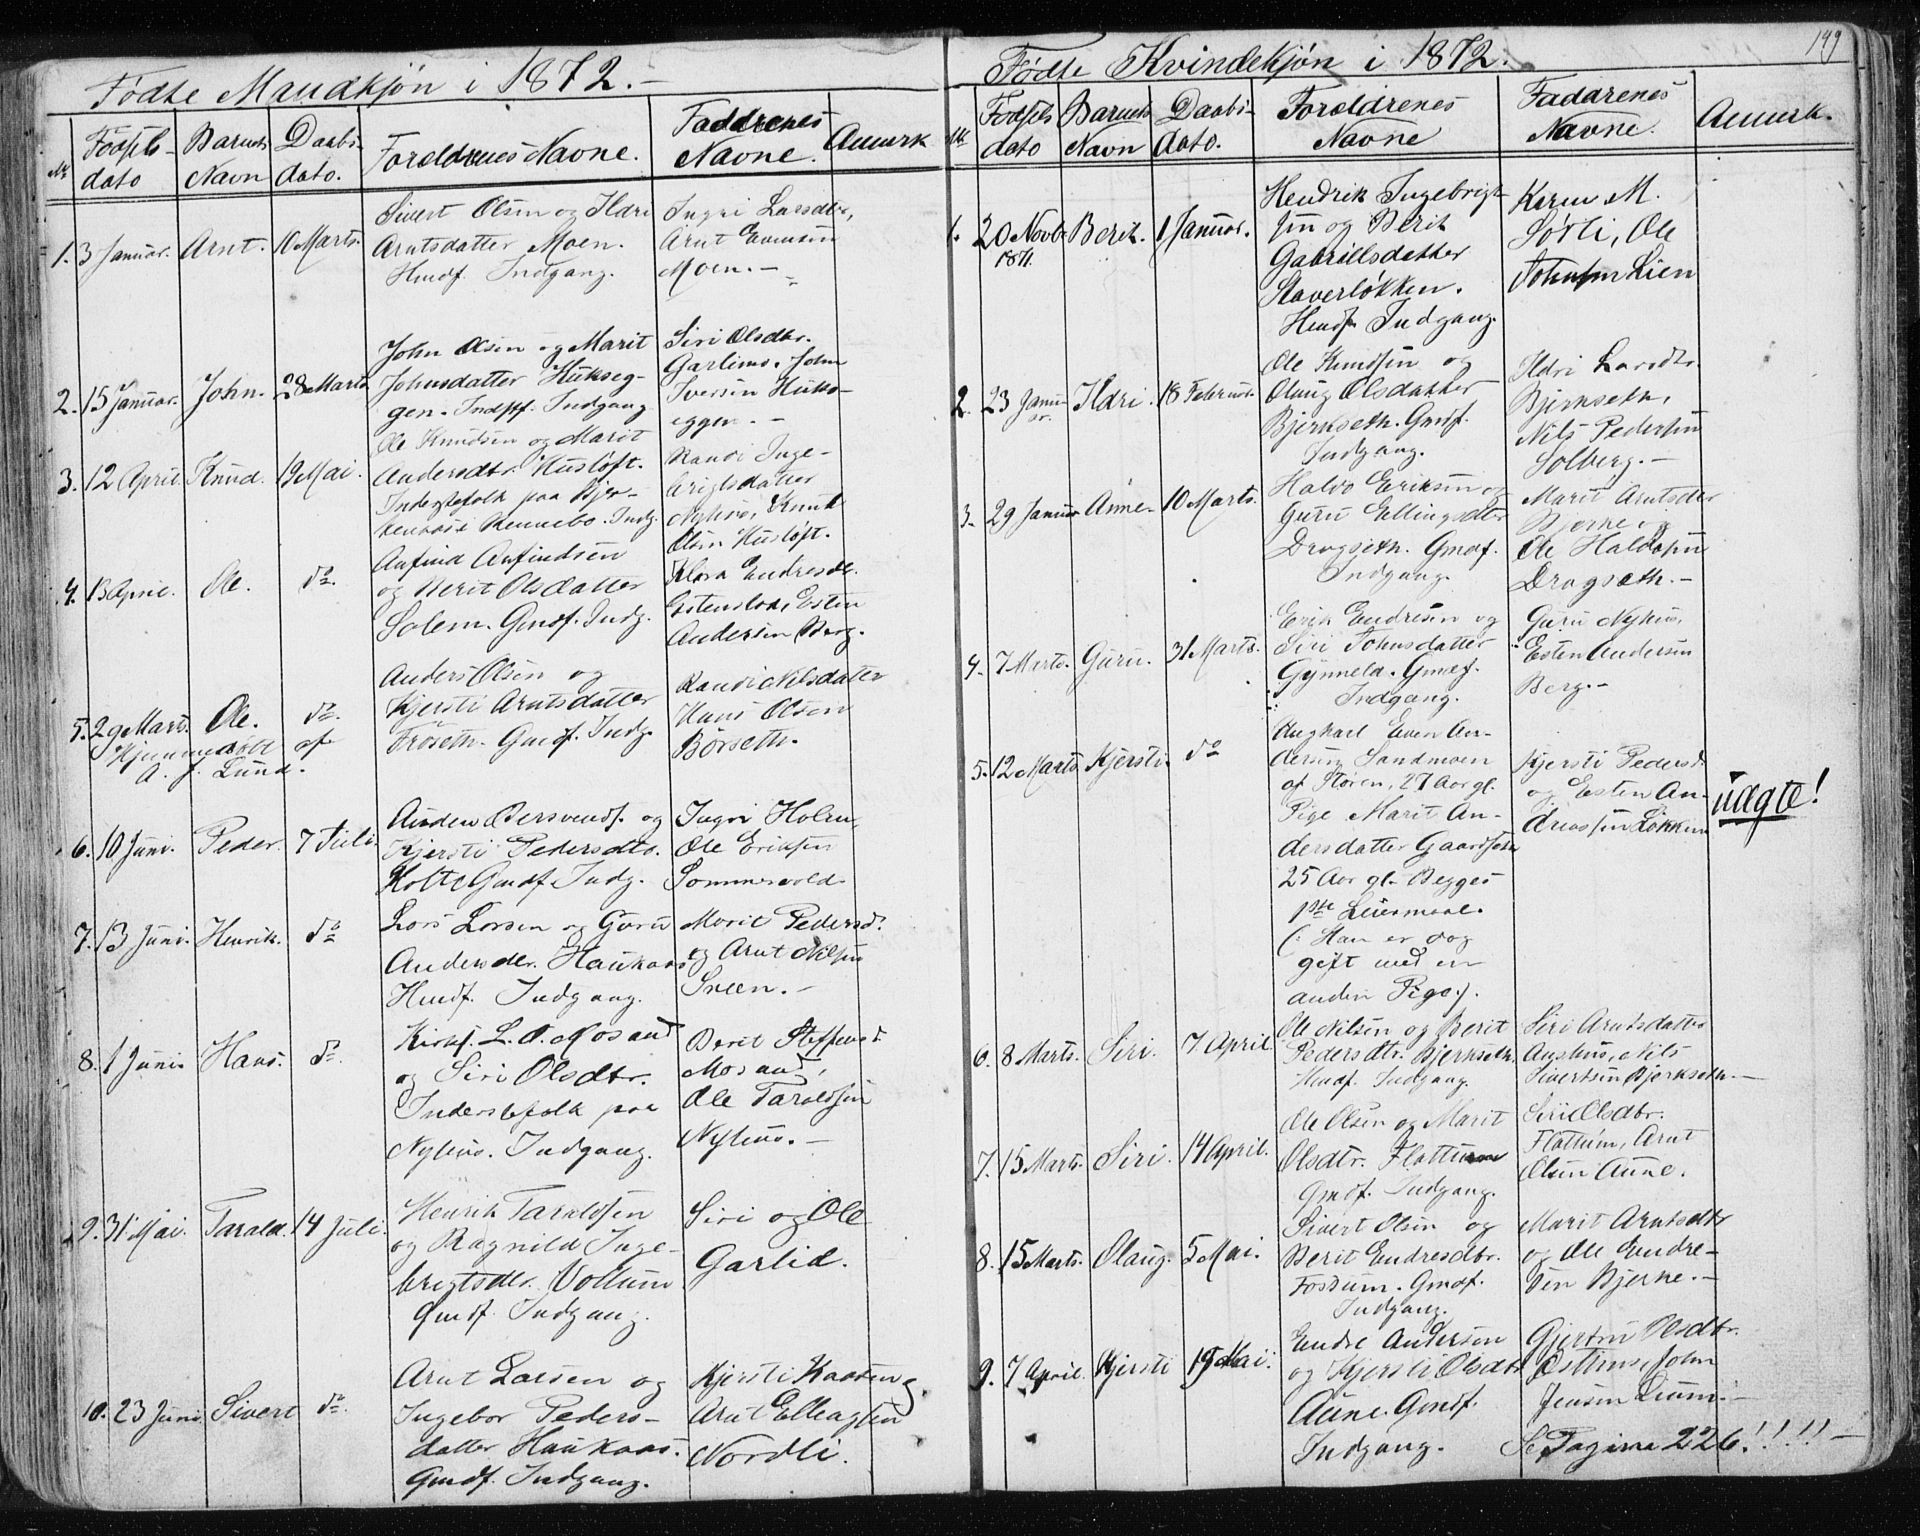 Fødte Mandkjøn i 1872.-
No
Fødsels-
dato
Barnets
Navn
Daabs-
dato.
Foreldrenes Navne.
Faddrenes
Navne.
Anmerk
1. 3 Januar. Arnt. 10 Marts.
Sivert Olsen og Ildri
Arntsdatter Moen.
Husmf. Indgang.
Ingri Larsdtr,
Arnt Evensen
Moen.-
2. 15 Januar. John. 28 Marts
John Olsen og Marit
Johnsdatter Hukseg-
gen. Indstf. Indgang
Siri Olsdtr.
Garlimo. John
Iversen Huks-
eggen.-
3. 12 April. Knud. 19 Mai.
Ole Knudsen og Marit
Andersdtr. Husløft.
Inderstefolk paa Bjer-
Rennebo. Indg.
Randi Inge-
brigtsdatter
Nyhus, Knut
Olsen Husløft.
4. 13 April. Ole. do.
Anfind Anfindsen
og Berit Olsdatter
Solem. Gmdf. Indg.
Endresdtr.
Estenstad, Esten
Andersen Berg.
5. 29 Marts. Ole. do.
Hjemmedøbt af
A. J. Lund.
Anders Olsen og
Kjersti Arntsdatter
Frøseth. Gmdf. Indg.
Randi Nilsdatter
Hans Olsen
Børseth.
6. 10 Juni. Peder. 7 Juli.
Anders Bersvends. og
Kjersti Pedersdtr.
Holte Gmdf. Indg.
Ingri Holm,
Ole Eriksen
Sommervold
7. 13 Juni. Henrik. do
Lars Larsen og Guru
Andersdtr. Haukaas
Husmf. Indgang.
Marit Pedersd.
og Arnt Nilsen
Sveen.-
8. 1 Juni. Hans. do.
Kirks. L. O. Mosand
og Siri Olsdtr.
Inderstefolk paa
Nyhus. Indgang.
Berit Steffensd
Mosand,
Ole Taraldsen
Nyhus.-
9. 31 Mai. Tarald. 14 Juli.
Henrik Taraldsen
og Ragnild Inge-
brigtsdtr. Vollum
Gmdf. Indgang.
Siri og Ole
Garlid.
10. 23 Juni. Sivert do.
Arnt Larsen og
Ingebor Peders-
datter Haukaas.
Gmdf. Indgang.
Kjersti Kaasen og
Arnt Ellevsen
Nordli.
199
Fødte Kvindekjøn i 1872.
No
Fødsels
dato
Barnets
Navn
Daabs-
dato.
Foreldrenes
Navne
Faddrenes
Navne.
Anmerk.
1. 20 Novbr. 1871. Berit. 1 Januar.
Hendrik Ingebrigt-
sen og Berit
Gabrielsdatter
Staverløkken.
Husmf. Indgang.
Karen M.
Sørli, Ole
Johnsen Lien
2. 23 Januar. Ildri. 18 Februar.
Ole Knudsen og
Olaug Olsdatter
Bjerkseth. Gmdf.
Indgang.
Ildri Larsdtr.
Bjerkseth,
Nils Pedersen
Solberg.-
3. 29 Januar Anne. 10 Marts.
Haldo Eriksen og
Guru Ellingsdtr
Dragseth. Gmdf.
Indgang.
Marit Arntsdtr
Bjerke, og
Ole Haldosen
Dragseth.-
4. 7 Marts. Guru. 31 Marts.
Erik Endresen og
Siri Johnsdatter
Gynneld. Gmdf.
Indgang.
Guru Nyhus,
Esten Andersen
Berg.-
5. 12 Marts Kjersti. do
Ungkarl Even An-
dersen Sandmoen
af Støren, 27 Aar gl.
Pige Marit An-
dersdatter Gaardsen
25 Aar gl. Begges
1ste Leiermaal.
(: Han er dog
gift med en
anden Pige:).
Kjersti Pedersd.
og Esten An-
dreassen Løkken
uægte!
6. 8 Marts. Siri. 7 April.
Ole Nilsen og Berit
Pedersdtr. Bjerkseth.
Husmf. Indgang.
Siri Arntsdatter
Aushus, Nils
Sivertsen Bjerkseth.-
7. 15 Marts. Siri. 14 April.
Ole Olsen og Marit
Olsdtr. Flattum
Gmdf. Indgang.
Siri Olsdtr.
Flattum, Arnt
Olsen Aune.
8. 15 Marts. Olaug. 5 Mai.
Sivert Olsen og
Berit Endresdtr.
Fossum. Gmdf.
Indgang.
Marit Arntsdtr
og Ole Endre-
sen Bjerke.-
9. 7 April. Kjersti 19 Mai.
Endre Andersen
og Kjersti Olsdtr
Aune. Gmdf.
Indgang.
Gjertru Olsdtr.
John
Jensen Lium.-
Se Pagina 226!!!!!-